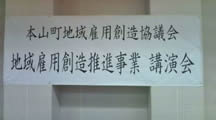 本山町地域雇用創造協議会
地域雇用創造推進事業 講演会